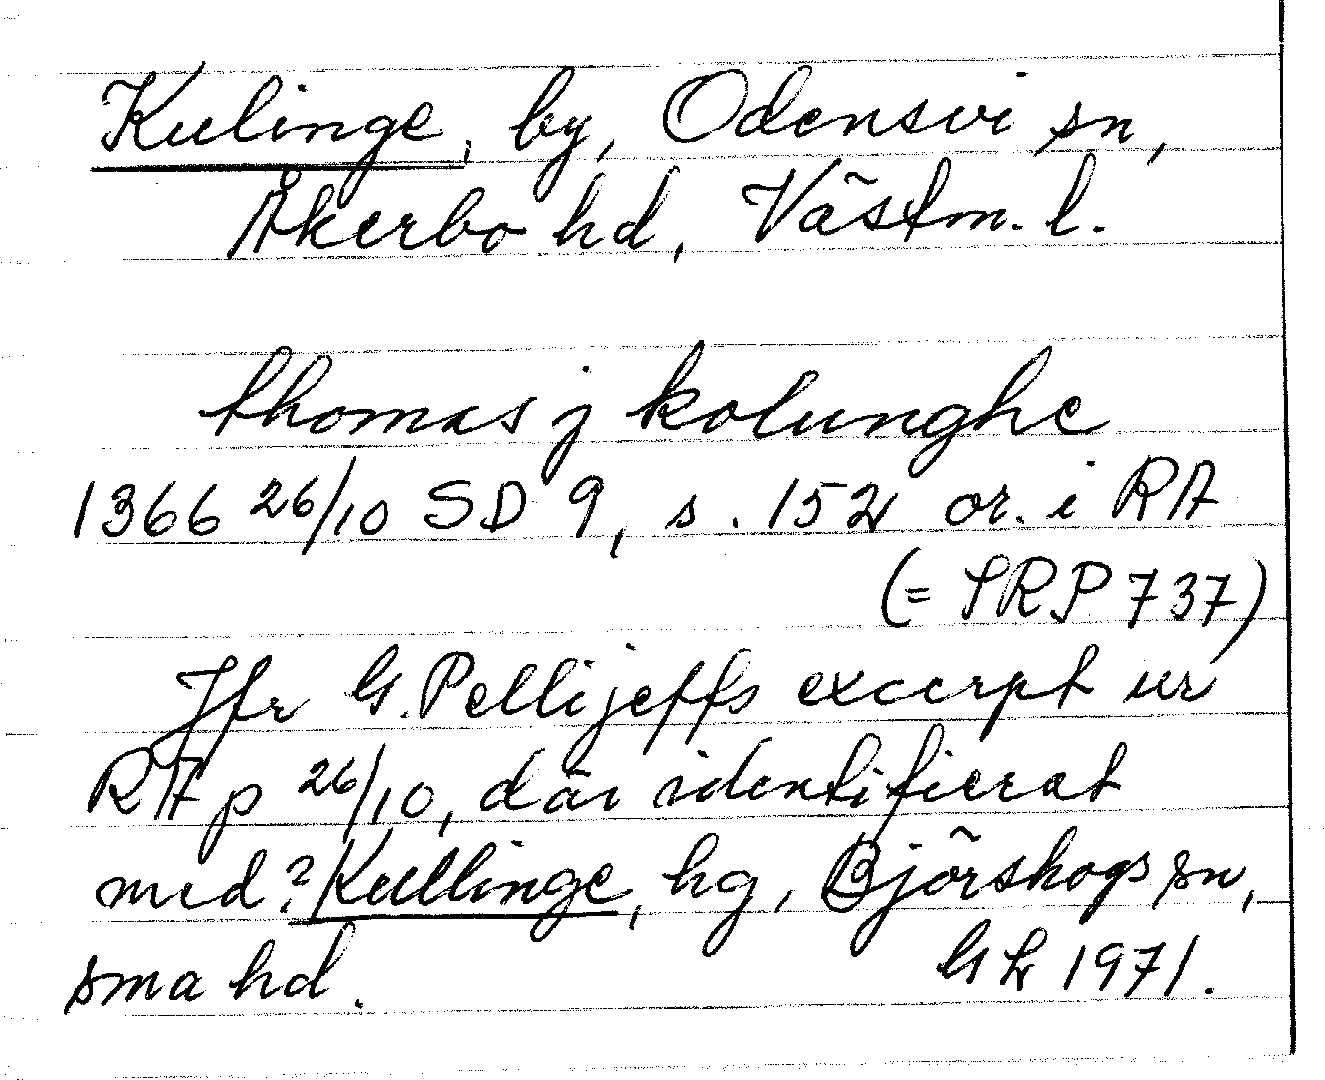 Kulinge, by, Odensvi sn,
Åkerbo hd, Västm. l.
thomas j kolunghe
1366 26/10 SD 9, s. 152 or. i RA
(= SRP 737)
Jfr G. Pellijeffs excerpt ur
RA p 26/10, där identifierat
med? Kullinge, hg, Björskogs sn,
sma hd. 1971.